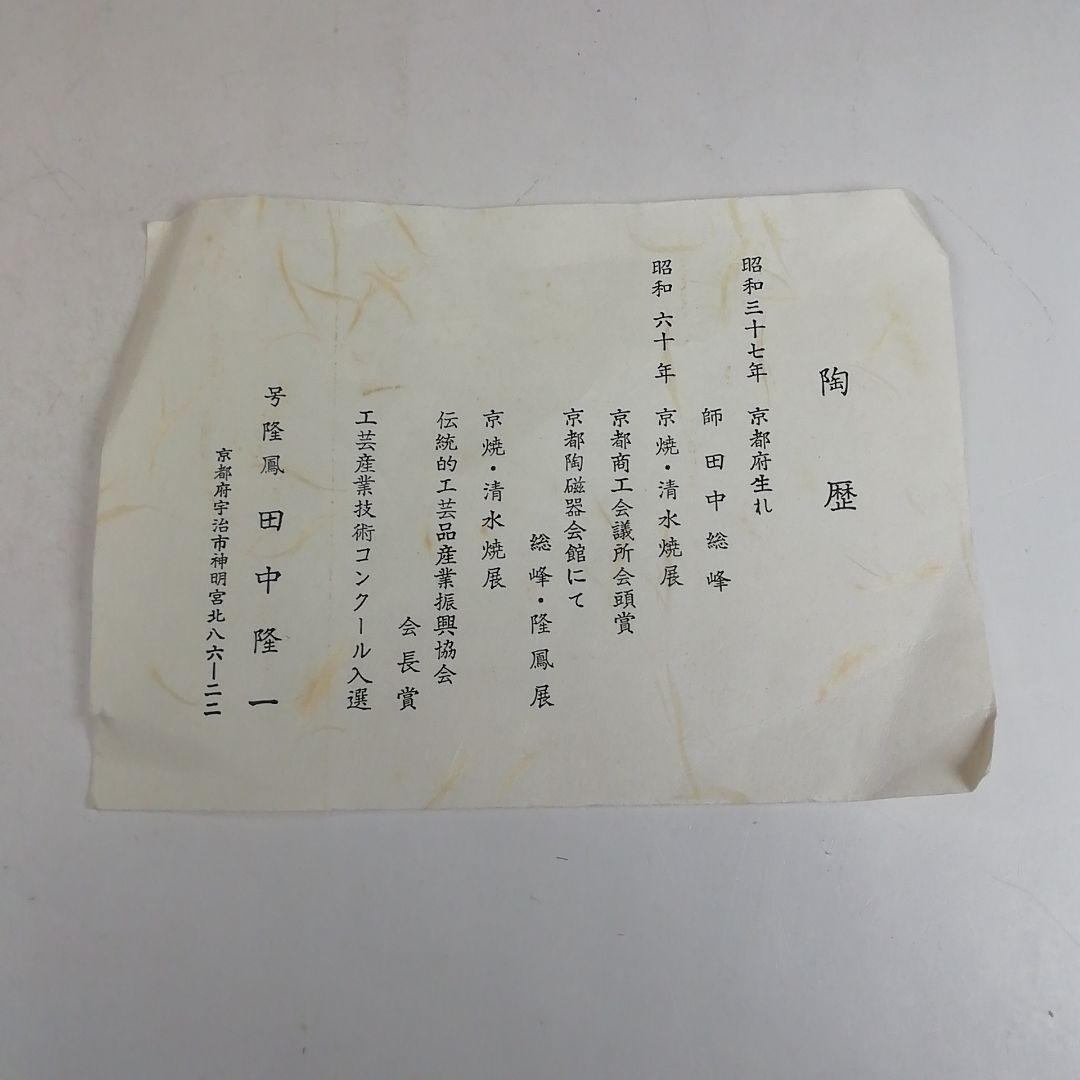 陶歴
昭和三十七年 京都府生れ
師 田中総峰
昭和六十年 京焼・清水焼展
京都商工会議所会頭賞
京都陶磁器会館にて
総峰・隆鳳展
京焼・清水焼展
伝統的工芸品産業振興協会
会長賞
工芸産業技術コンクール入選
号隆鳳 田中隆一
京都府宇治市神明宮北八六ー二二